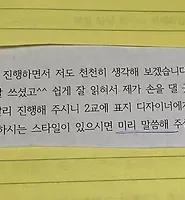 진행하면서 저도 천천히 생각해 보겠습니다
쓰셨고^^ 쉽게 잘 읽혀서 제가 손을 댈
진행해 주시니 2교에 표지 디자이너에게
하시는 스타일이 있으시면 미리 말씀해 주